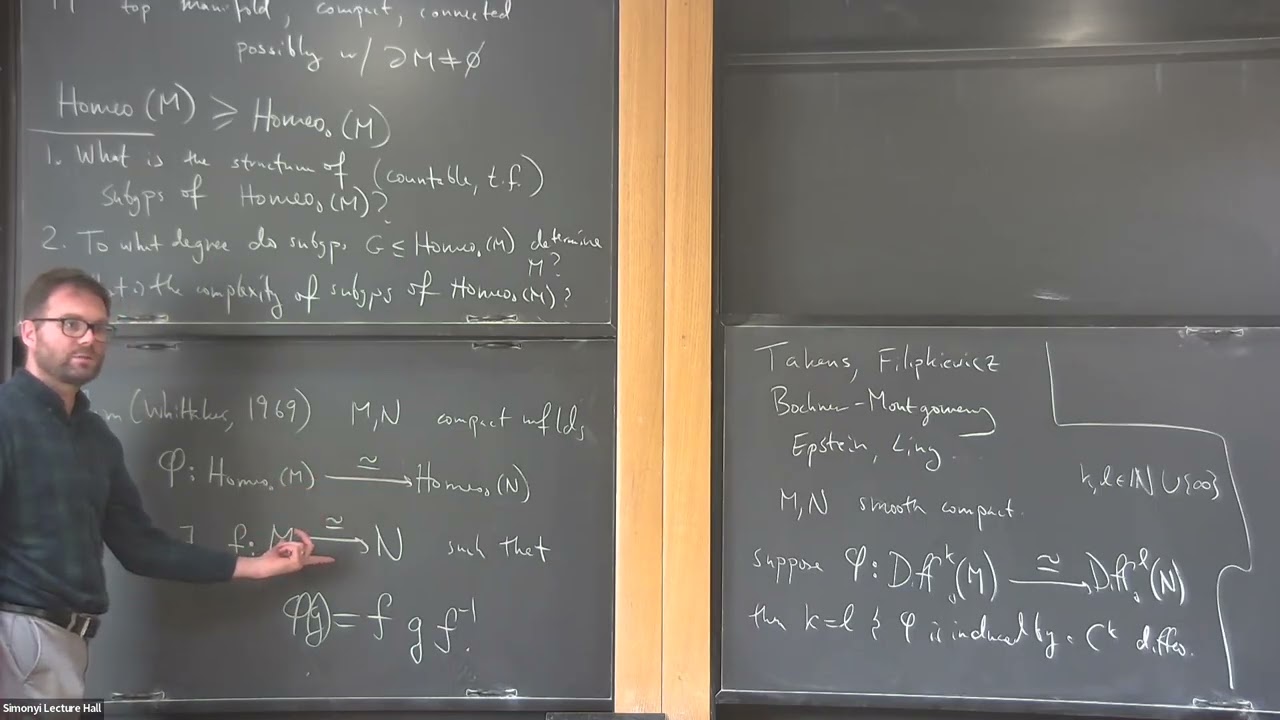 top manifold, compact, connected
possibly w/ ∂M≠∅
Homeo(M) ≥ Homeo₀(M)
1. What is the structure of (countable, t.f.)
subgps of Homeo₀(M)?
2. To what degree do subgps G ≤ Homeo₀(M) determine
M?
the complexity of subgps of Homeo₀(M)?
(Whittaker, 1969) M,N compact mflds
φ: Homeo₀(M) ≅→ Homeo₀(N)
f: M ≅→ N such that
φ(g) = f g f⁻¹.
Takens, Filipkiewicz
Bochner-Montgomery
Epstein, Ling.
k,l ∈ ℕ ∪ {∞}
M,N smooth compact.
suppose φ: Diff₀ᵏ(M) ≅→ Diff₀ˡ(N)
then k=l & φ is induced by a Cᵏ diffeo.
Simonyi Lecture Hall